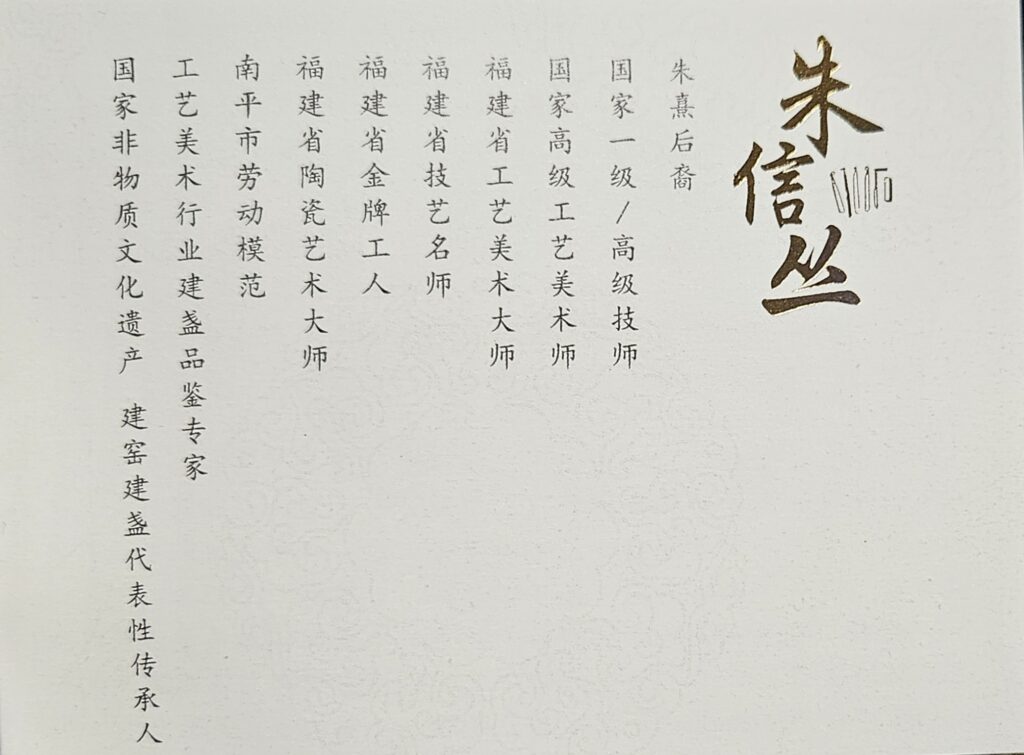 朱信丛
朱熹后裔
国家一级/高级技师
国家高级工艺美术师
福建省工艺美术大师
福建省技艺名师
福建省金牌工人
福建省陶瓷艺术大师
南平市劳动模范
工艺美术行业建盏品鉴专家
国家非物质文化遗产 建窑建盏代表性传承人